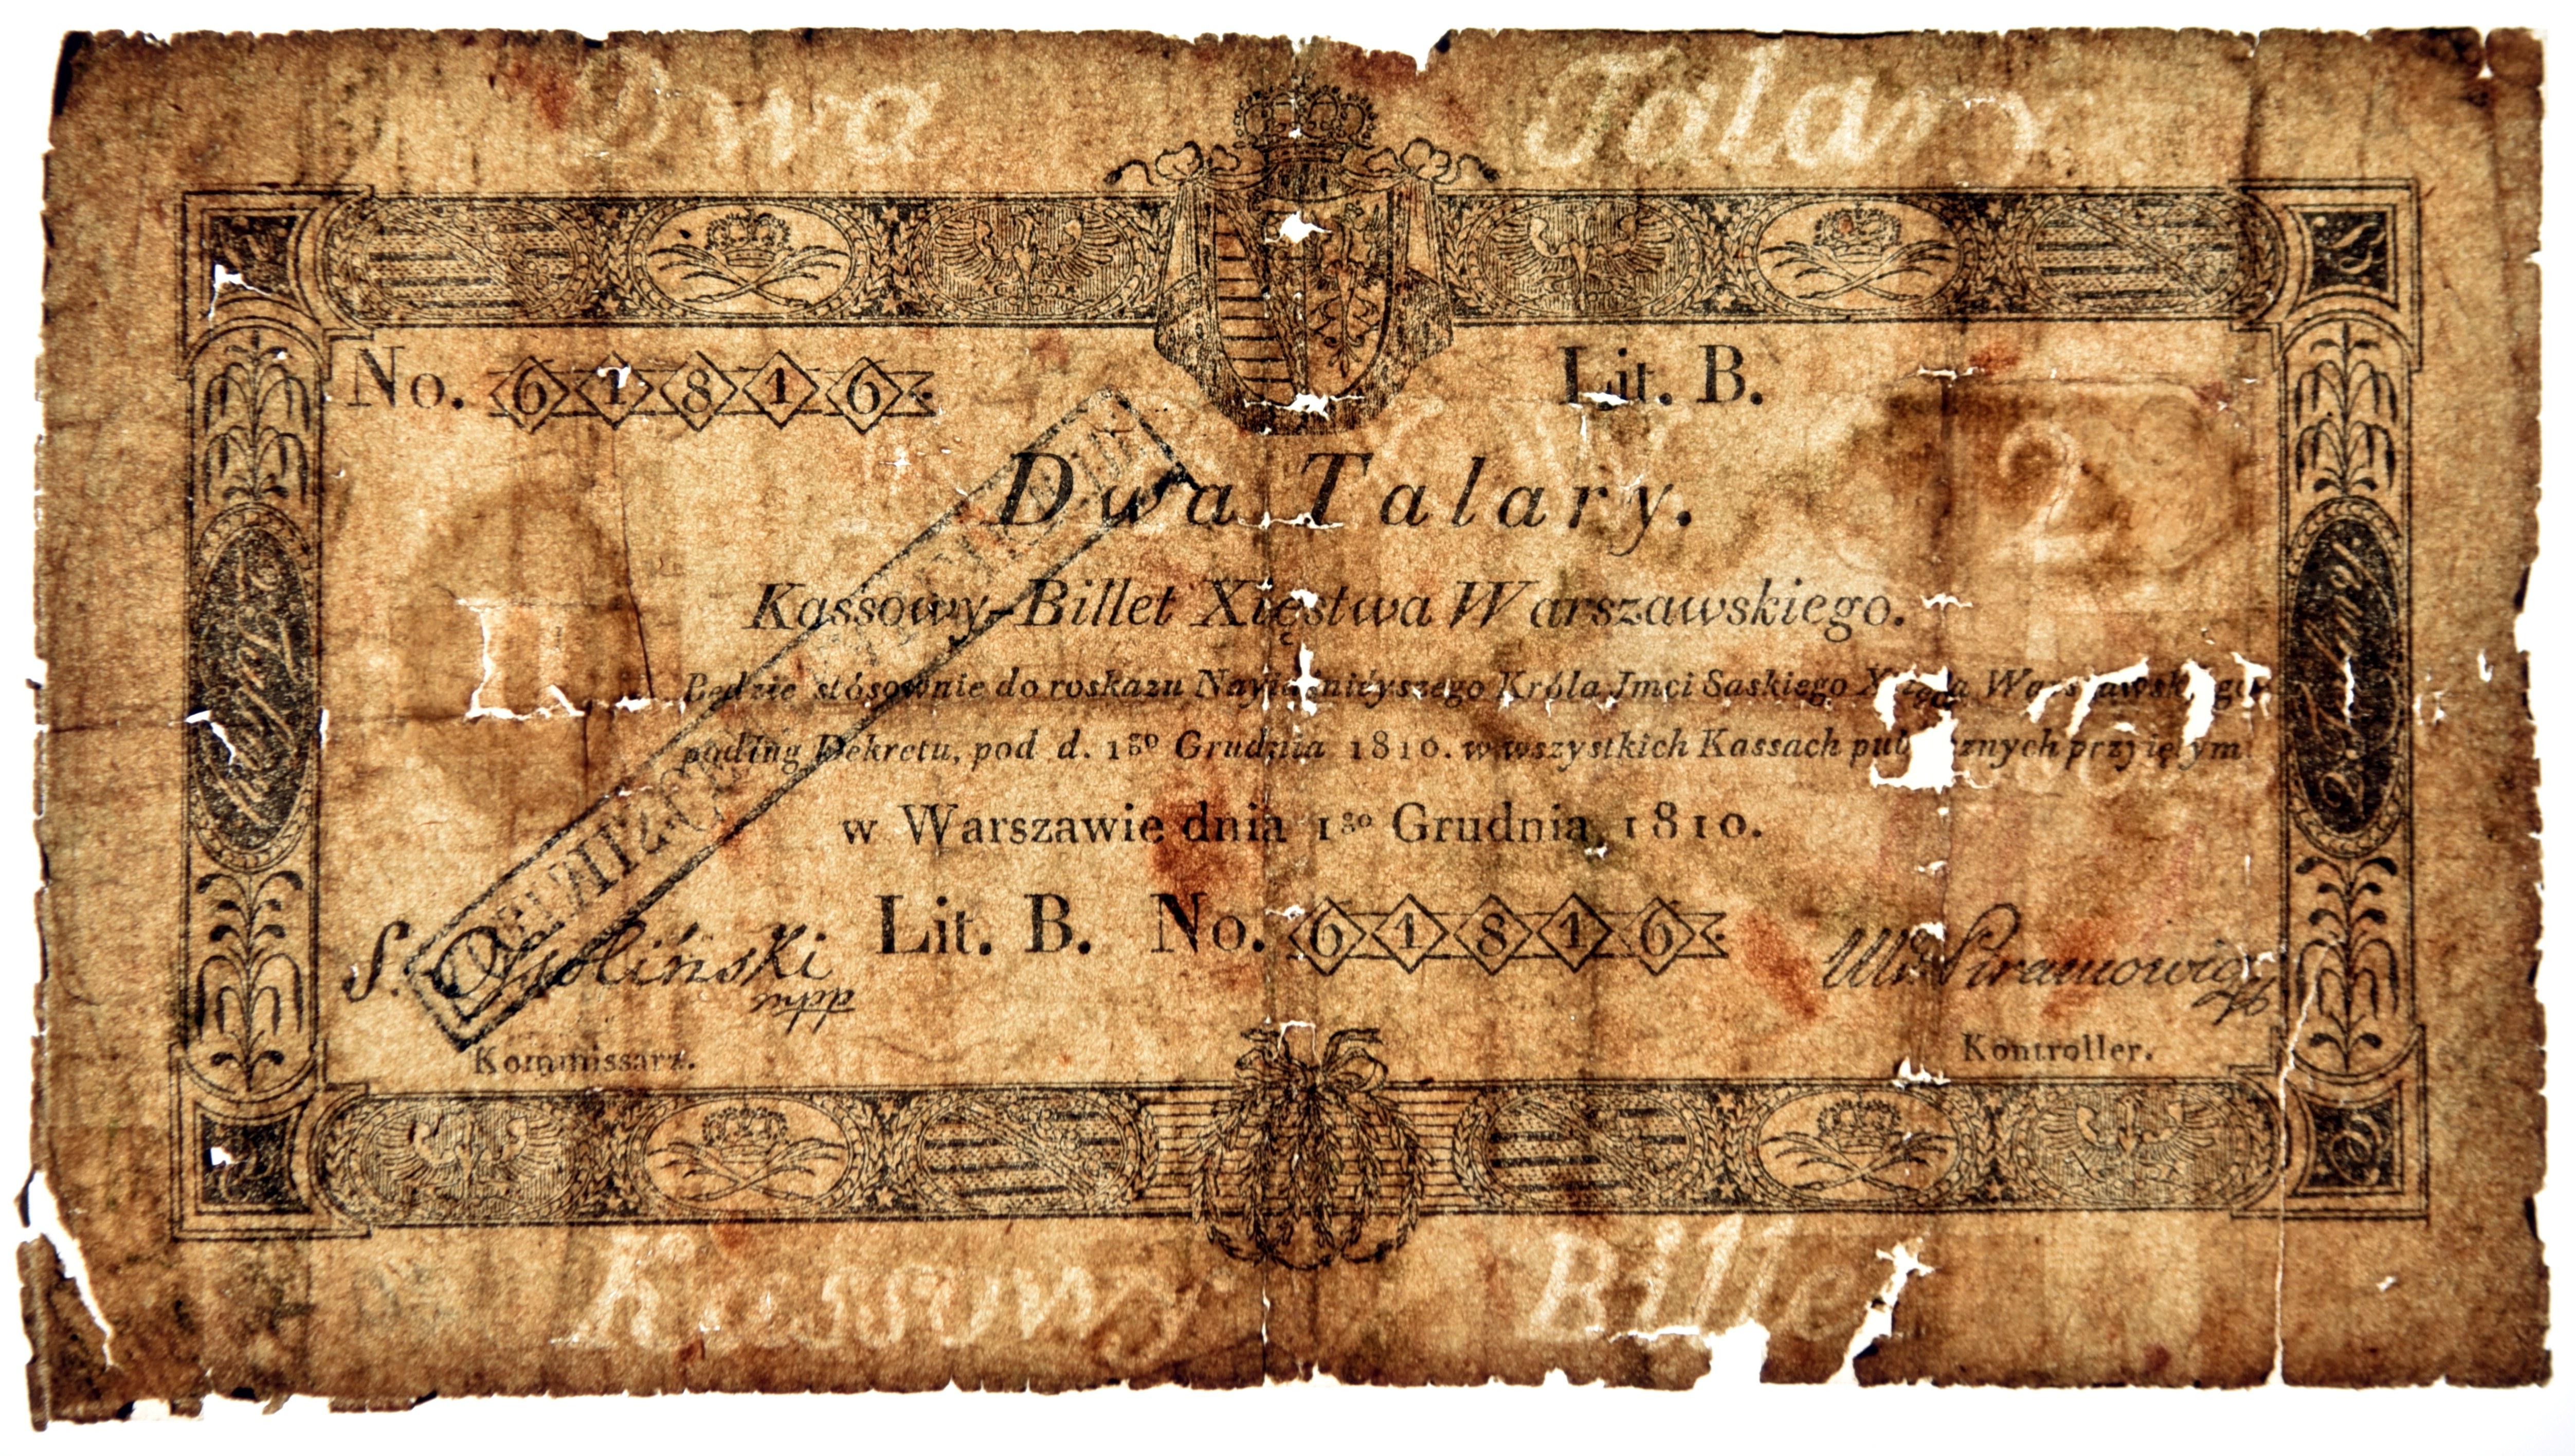 Dwa Talary
No. 61816.
Lit. B.
Dwa Talary.
2
Kassowy-Billet Xięstwa Warszawskiego.
Będzie stósownie do roskazu Nayiaśnieyszego Króla Jmci Saskiego Xiążęcia Warszawskiego
podług Dekretu, pod d. 1go Grudnia 1810. w wszystkich Kassach publicznych przyiętym
w Warszawie dnia 1go Grudnia, 1810.
Lit. B. No. 61816.
S. Ossoliński
mpp
Piramowicz
Kommissarz.
Kontroller.
Kassowy Billet